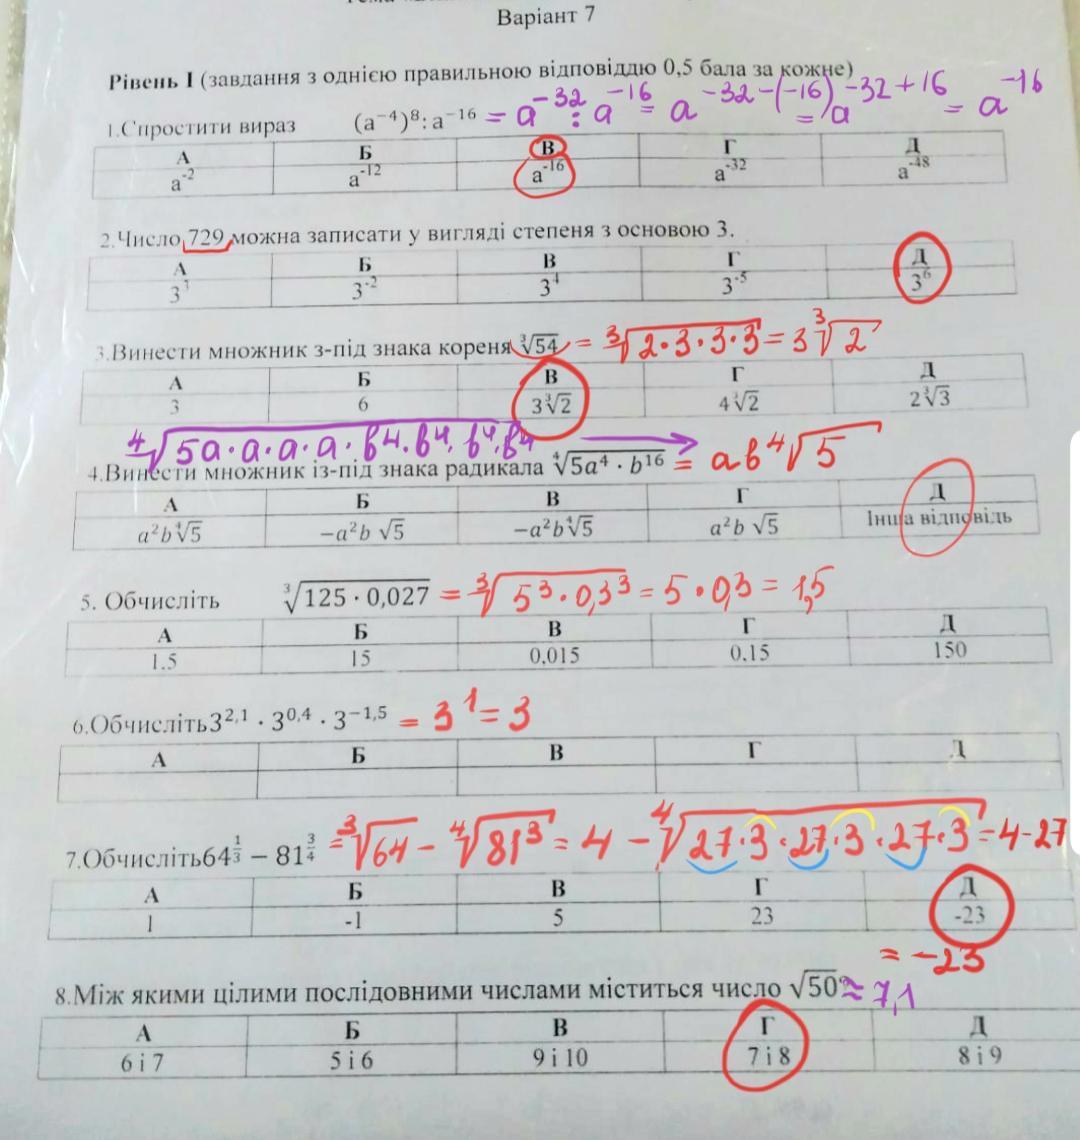 Варіант 7
Рівень І (завдання з однією правильною відповіддю 0,5 бала за кожне)
1.Спростити вираз (a⁻⁴)⁸: a⁻¹⁶ = a⁻³² : a⁻¹⁶ = a⁻³²⁻⁽⁻¹⁶⁾ = a⁻³²⁺¹⁶ = a⁻¹⁶
А Б В Г Д
a⁻² a⁻¹² a⁻¹⁶ a⁻³² a⁻⁴⁸
2.Число 729 можна записати у вигляді степеня з основою 3.
А Б В Г Д
3³ 3⁻² 3⁴ 3⁻⁵ 3⁶
3.Винести множник з-під знака кореня ∛54 = ∛2·3·3·3 = 3∛2
А Б В Г Д
3 6 3∛2 4∛2 2∛3
∜5a·a·a·a·b⁴·b⁴·b⁴·b⁴
4.Винести множник із-під знака радикала ∜5a⁴ · b¹⁶ = ab⁴√5
А Б В Г Д
a²b∜5 −a²b √5 −a²b∜5 a²b √5 Інша відповідь
5. Обчисліть ∛125 · 0,027 = ∛5³·0,3³ = 5·0,3 = 1,5
А Б В Г Д
1.5 15 0,015 0,15 150
6.Обчисліть 3²,¹ · 3⁰,⁴ · 3⁻¹,⁵ = 3¹ = 3
А Б В Г Д
7.Обчисліть 64^(1/3) − 81^(3/4) = ∛64 − ∜81³ = 4 − ∜27·3·27·3·27·3 = 4-27
А Б В Г Д
1 -1 5 23 -23
= −23
8.Між якими цілими послідовними числами міститься число √50? ≈ 7,1
А Б В Г Д
6 і 7 5 і 6 9 і 10 7 і 8 8 і 9